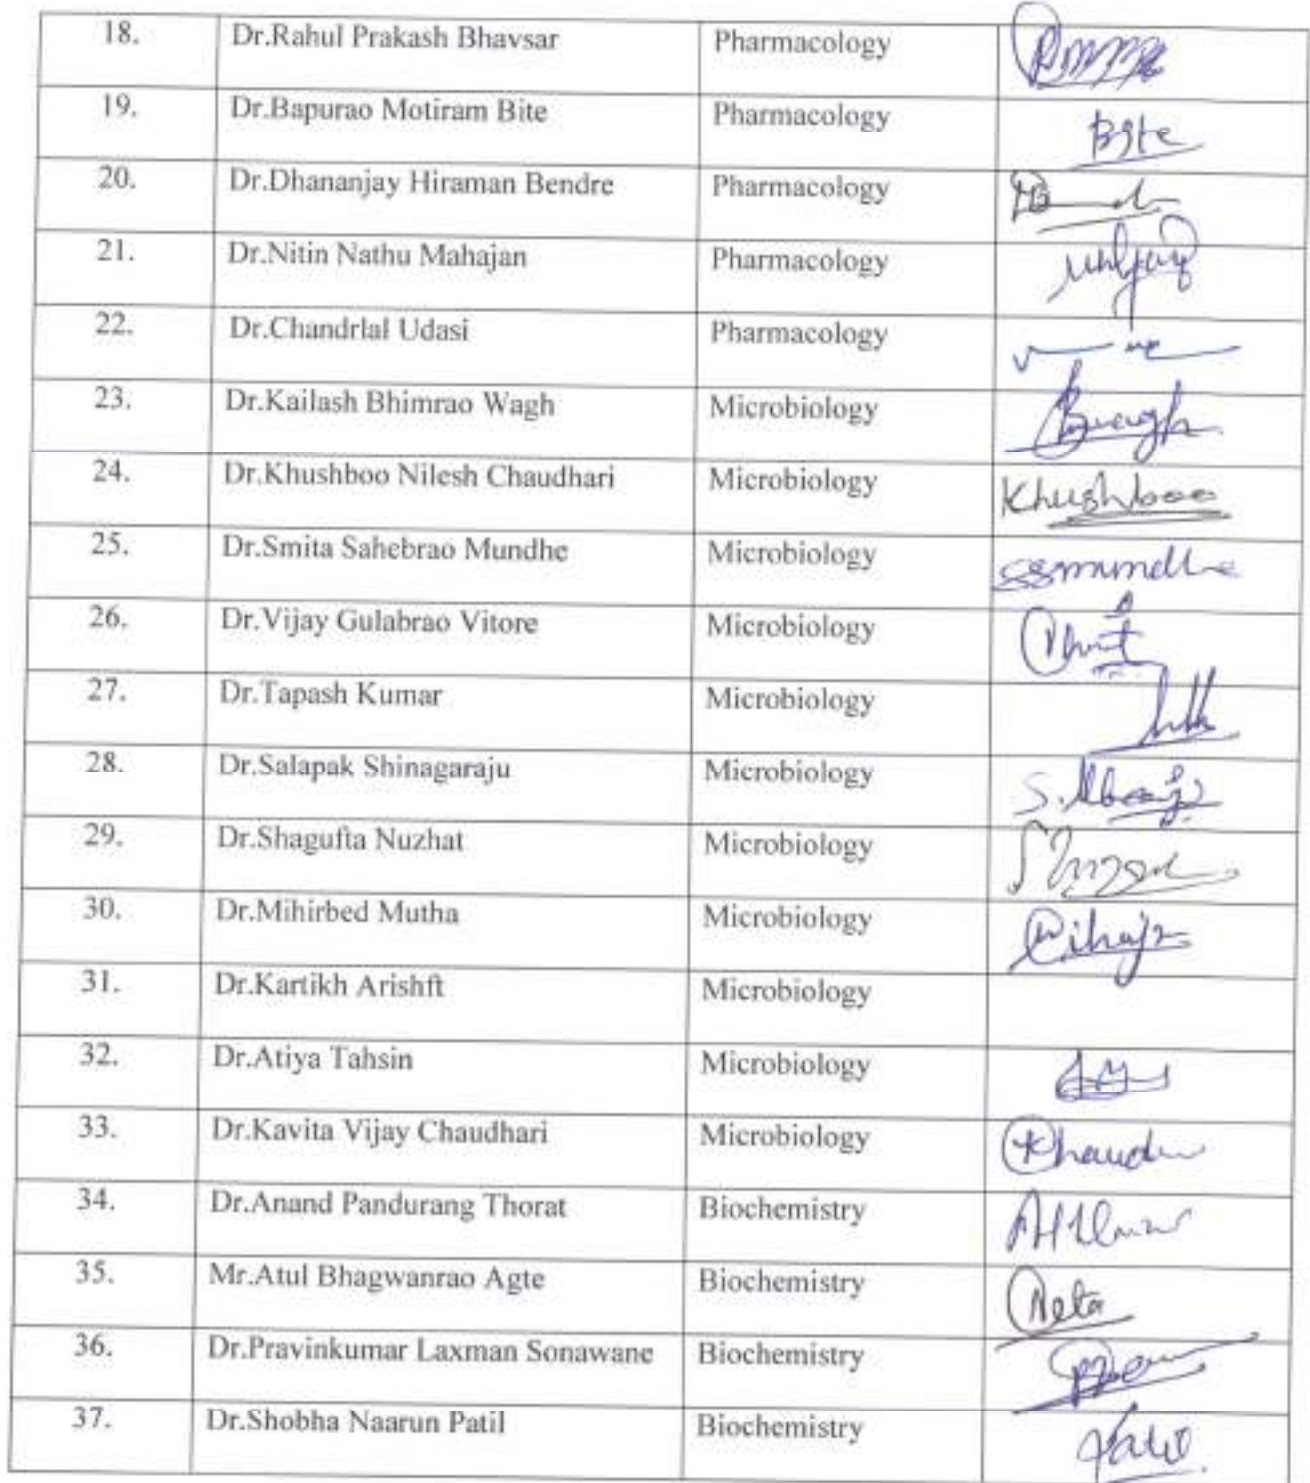 18. Dr.Rahul Prakash Bhavsar Pharmacology
19. Dr.Bapurao Motiram Bite Pharmacology Bite
20. Dr.Dhananjay Hiraman Bendre Pharmacology
21. Dr.Nitin Nathu Mahajan Pharmacology
22. Dr.Chandrlal Udasi Pharmacology
23. Dr.Kailash Bhimrao Wagh Microbiology
24. Dr.Khushboo Nilesh Chaudhari Microbiology Khushboo
25. Dr.Smita Sahebrao Mundhe Microbiology SSmundhe
26. Dr.Vijay Gulabrao Vitore Microbiology
27. Dr.Tapash Kumar Microbiology
28. Dr.Salapak Shinagaraju Microbiology
29. Dr.Shagufta Nuzhat Microbiology
30. Dr.Mihirbed Mutha Microbiology
31. Dr.Kartikh Arishft Microbiology
32. Dr.Atiya Tahsin Microbiology
33. Dr.Kavita Vijay Chaudhari Microbiology
34. Dr.Anand Pandurang Thorat Biochemistry
35. Mr.Atul Bhagwanrao Agte Biochemistry
36. Dr.Pravinkumar Laxman Sonawane Biochemistry
37. Dr.Shobha Naarun Patil Biochemistry